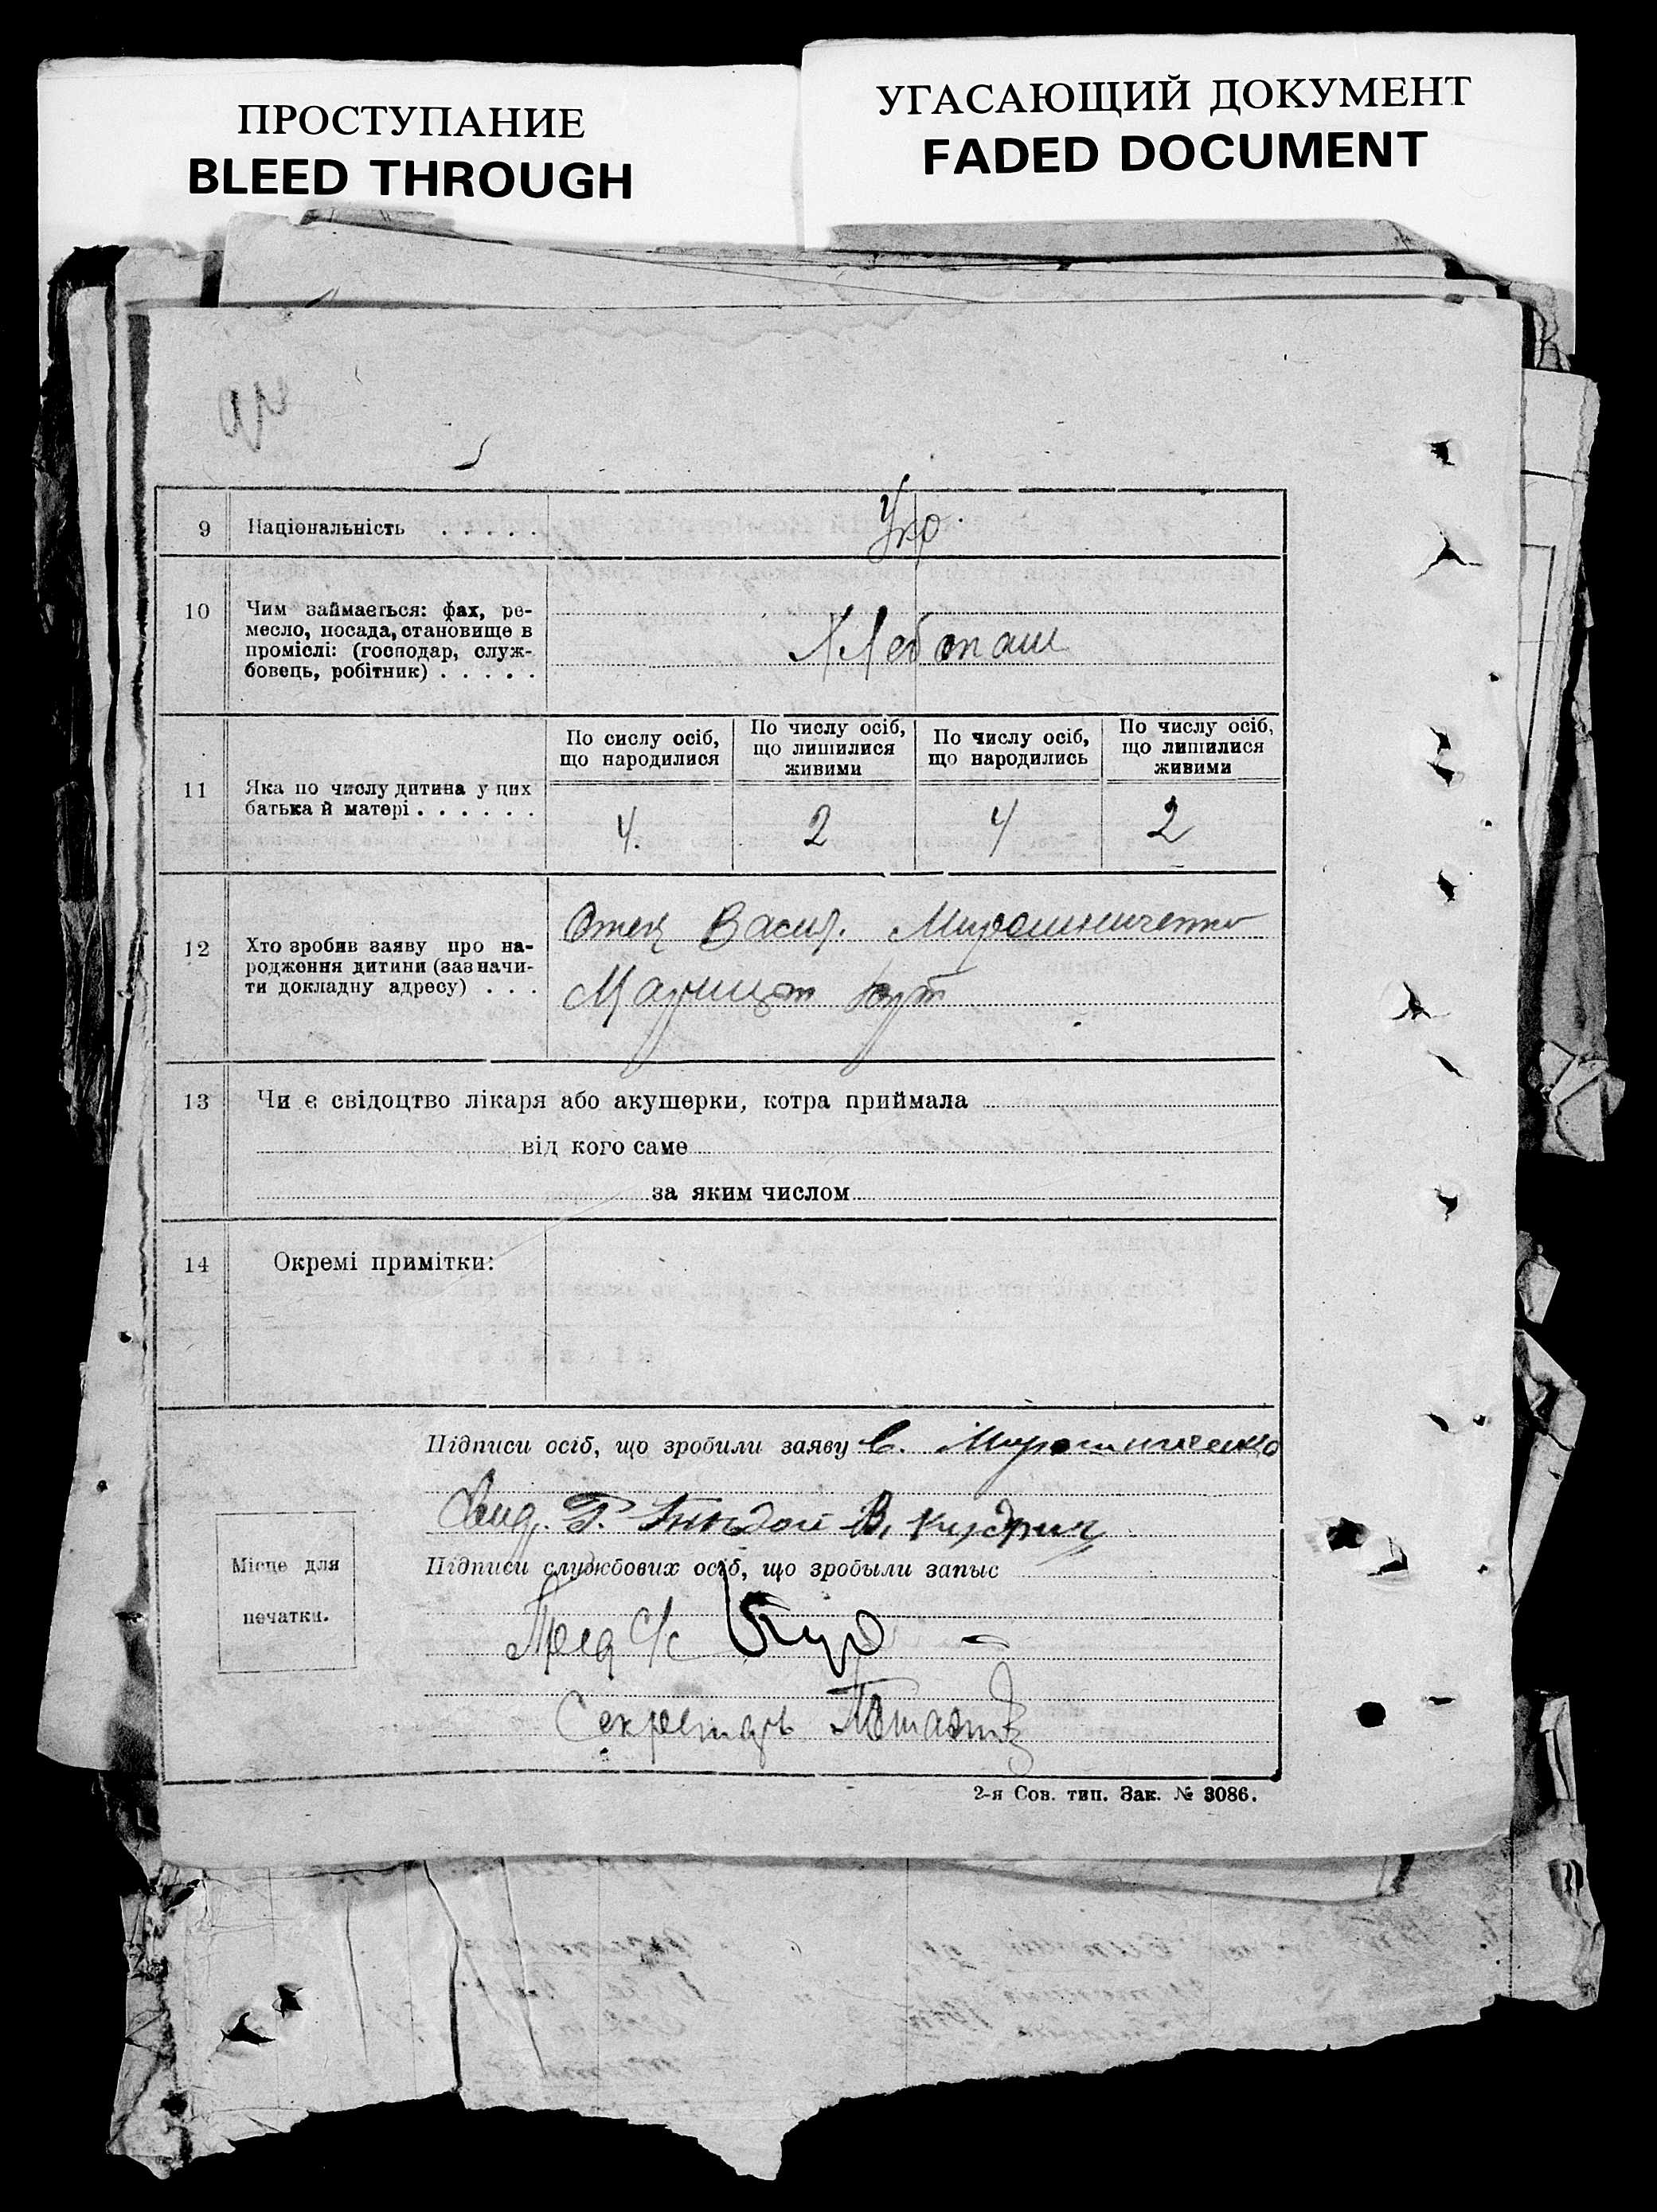 ПРОСТУПАНИЕ
BLEED THROUGH
УГАСАЮЩИЙ ДОКУМЕНТ
FADED DOCUMENT
9 Національність . . . . . Укр.
10 Чим займається: фах, ре-
месло, посада, становище в
проміслі: (господар, служ-
бовець, робітник) . . . . .
Хлебопаш
11 Яка по числу дитина у цих
батька й матері . . . . . .
По сислу осіб,
що народилися
По числу осіб,
що лишилися
живими
По числу осіб,
що народились
По числу осіб,
що лишилися
живими
4. 2 4 2
12 Хто зробив заяву про на-
родження дитини (зазначи-
ти докладну адресу) . . .
Отец Васил. Мирошниченко
хут
13 Чи є свідоцтво лікаря або акушерки, котра приймала
від кого саме
за яким числом
14 Окремі примітки:
Підписи осіб, що зробили заяву В. Мирошниченко
Свид. Г. В. Кудрик
Підписи службових осіб, що зробыли запыс
Місце для
печатки.
Пред С/с
Секретарь
2-я Сов. тип. Зак. № 3086.